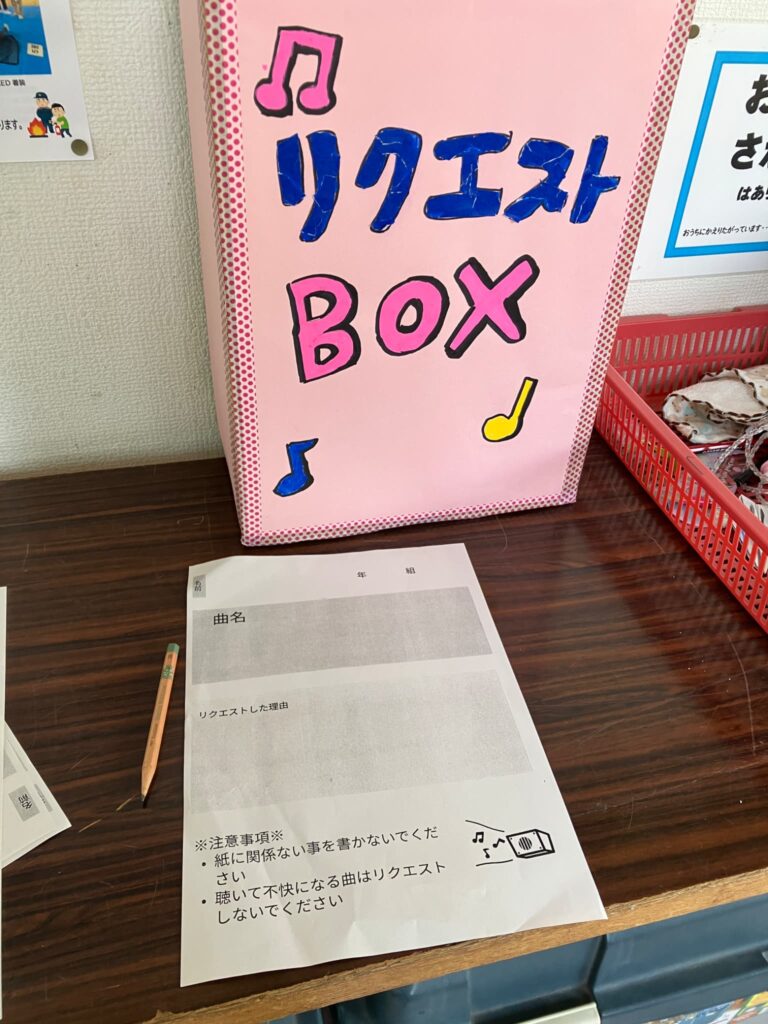 ED 着装
ります。
リクエスト
BOX
お
さ
はあ
おうちにかえりたがっています・・
名前
年 組
曲名
リクエストした理由
※注意事項※
• 紙に関係ない事を書かないでくだ
さい
• 聴いて不快になる曲はリクエスト
しないでください
名前